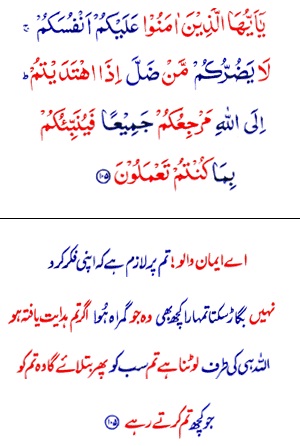 يٰۤاَيُّهَا الَّذِيْنَ اٰمَنُوْا عَلَيْكُمْ اَنْفُسَكُمْ ۚ
لَا يَضُرُّكُمْ مَّنْ ضَلَّ اِذَا اهْتَدَيْتُمْ ؕ
اِلَى اللّٰهِ مَرْجِعُكُمْ جَمِيْعًا فَيُنَبِّئُكُمْ
بِمَا كُنْتُمْ تَعْمَلُوْنَ ﴿۱۰۵﴾
اے ایمان والو! تم پر لازم ہے کہ اپنی فکر کرو
نہیں بگاڑ سکتا تمہارا کچھ بھی وہ جو گمراہ ہُوا اگر تم ہدایت یافتہ ہو
اللہ ہی کی طرف لوٹنا ہے تم سب کو پھر بتلائے گا وہ تم کو
جو کچھ تم کرتے رہے ﴿۱۰۵﴾